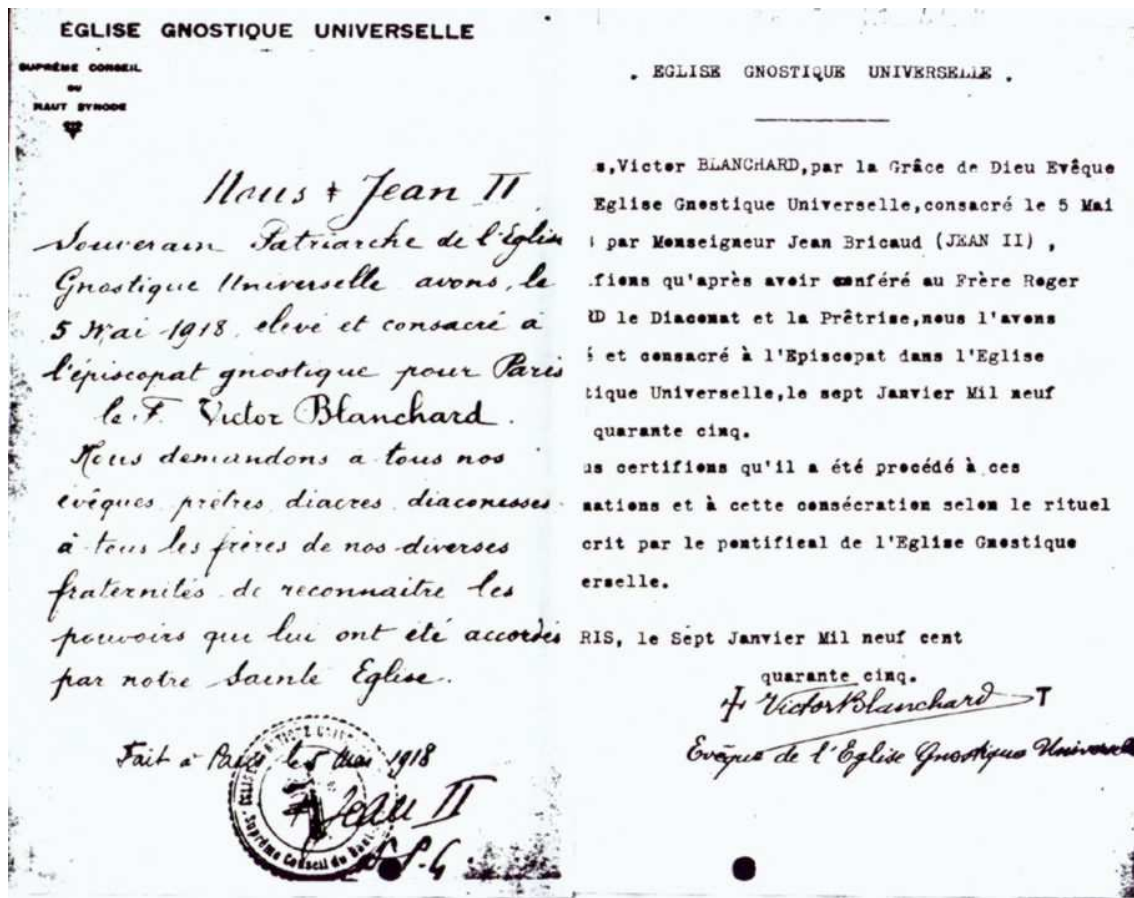 ÉGLISE GNOSTIQUE UNIVERSELLE
SUPRÊME CONSEIL
DU
HAUT SYNODE
Nous ‡ Jean II
Souverain Patriarche de l'Eglise
Gnostique Universelle avons, le
5 Mai 1918, élevé et consacré à
l'épiscopat gnostique pour Paris
le F. Victor Blanchard.
Nous demandons a tous nos
évêques prêtres diacres diaconesses
à tous les frères de nos diverses
fraternités de reconnaitre les
pouvoirs qui lui ont été accordés
par notre Sainte Eglise.
Fait à Paris le 5 Mai 1918
Jean II
Suprême Conseil du Haut
. EGLISE GNOSTIQUE UNIVERSELLE .
s,Victor BLANCHARD,par la Grâce de Dieu Evêque
Eglise Gnostique Universelle,consacré le 5 Mai
par Monseigneur Jean Bricaud (JEAN II) ,
.fions qu'après avoir conféré au Frère Roger
RD le Diaconat et la Prêtrise,nous l'avons
é et consacré à l'Episcopat dans l'Eglise
tique Universelle,le sept Janvier Mil neuf
quarante cinq.
us certifions qu'il a été procédé à ces
nations et à cette consécration selon le rituel
crit par le pontifical de l'Eglise Gnostique
erselle.
RIS, le Sept Janvier Mil neuf cent
quarante cinq.
‡ Victor Blanchard T
Evêque de l'Eglise Gnostique Universelle